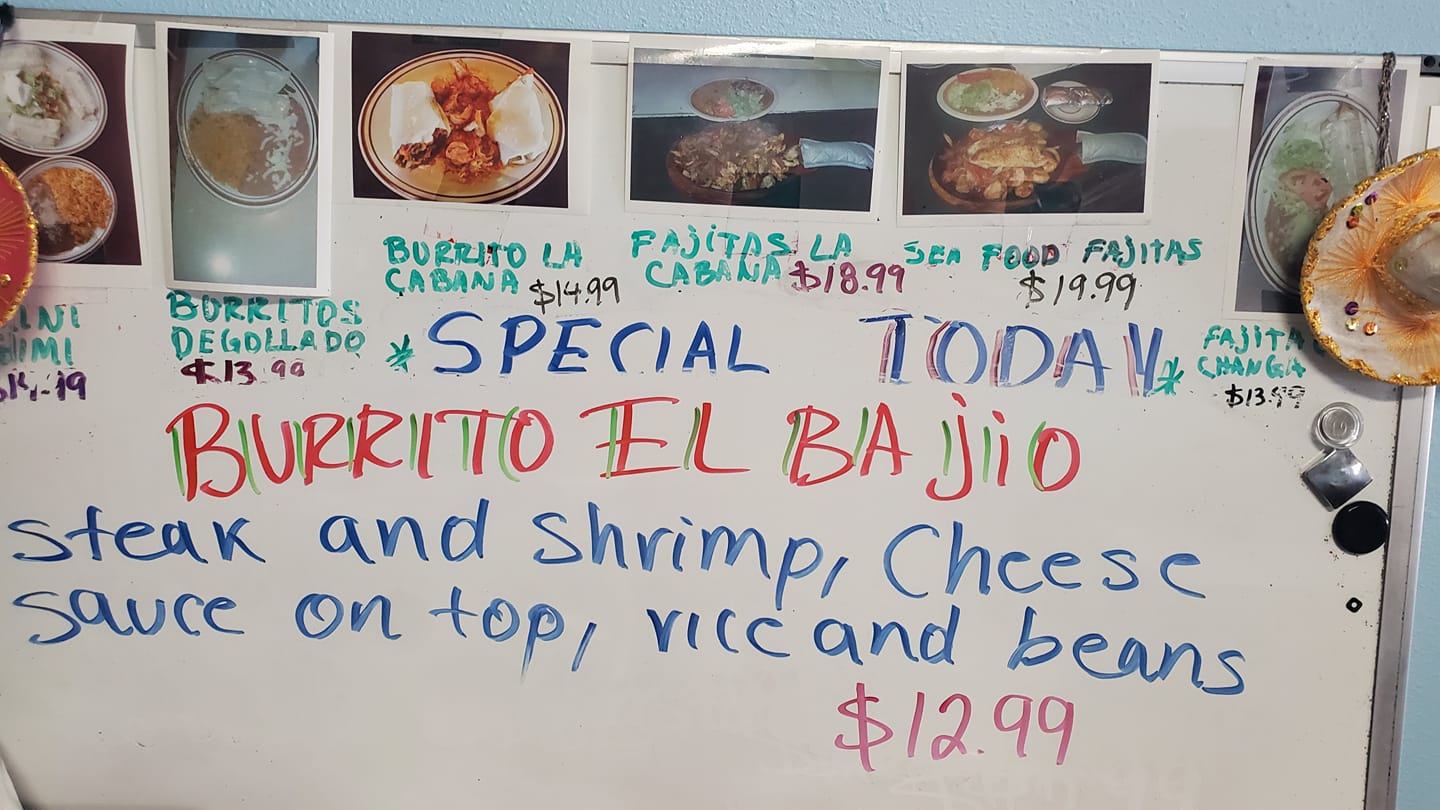 BURRITO LA
CABANA $14.99
FAJITAS LA
CABANA $18.99
SEA FOOD FAJITAS
$19.99
BURRITOS
DEGOLLADO
$13.99
* SPECIAL TODAY *
FAJITA
CHANGA
$13.99
BURRITO EL BAJIO
steak and shrimp, Cheese
sauce on top, rice and beans
$12.99